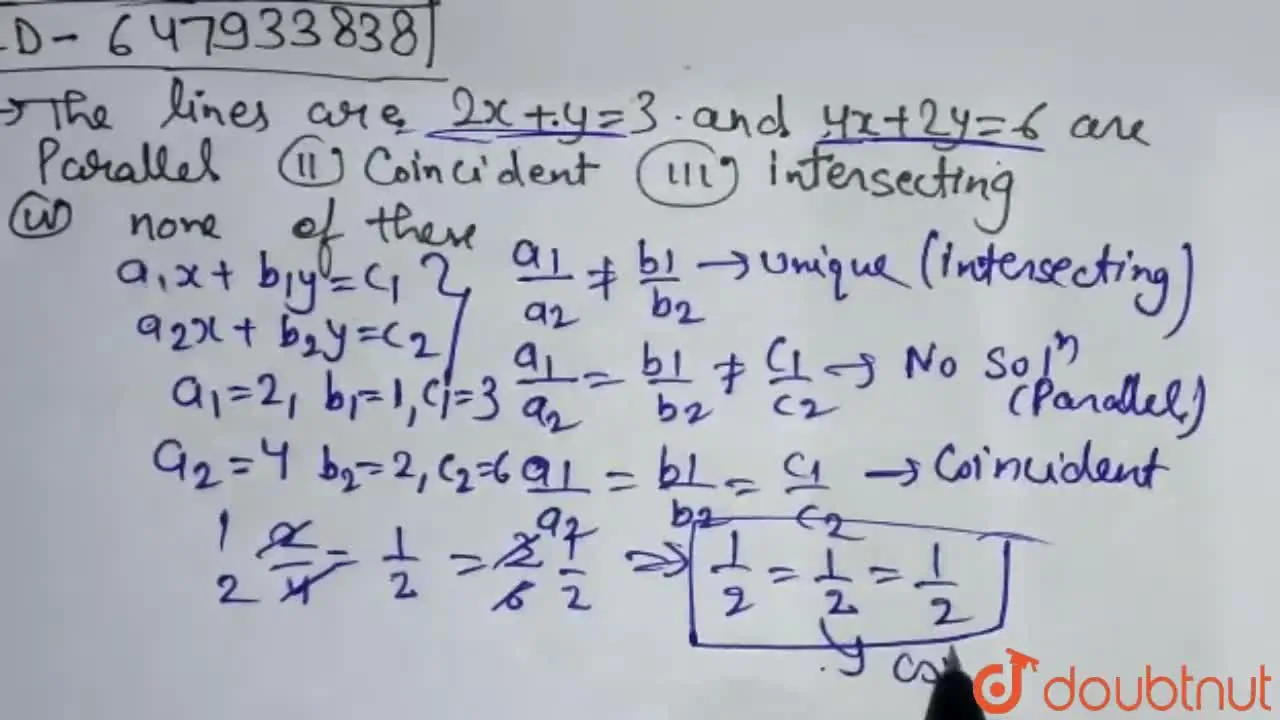 ID - 647933838
→ The lines are 2x + y = 3 and 4x + 2y = 6 are
Parallel (ii) Coincident (iii) intersecting
(iv) none of these
a1x + b1y = c1
a2x + b2y = c2
a1/a2 ≠ b1/b2 → Unique (Intersecting)
a1 = 2, b1 = 1, c1 = 3
a1/a2 = b1/b2 ≠ c1/c2 → No Solⁿ (Parallel)
a2 = 4 b2 = 2, c2 = 6
a1/a2 = b1/b2 = c1/c2 → Coincident
1 2/4 2 = 1/2 = 3/6 1/2 ⇒ 1/2 = 1/2 = 1/2
doubtnut